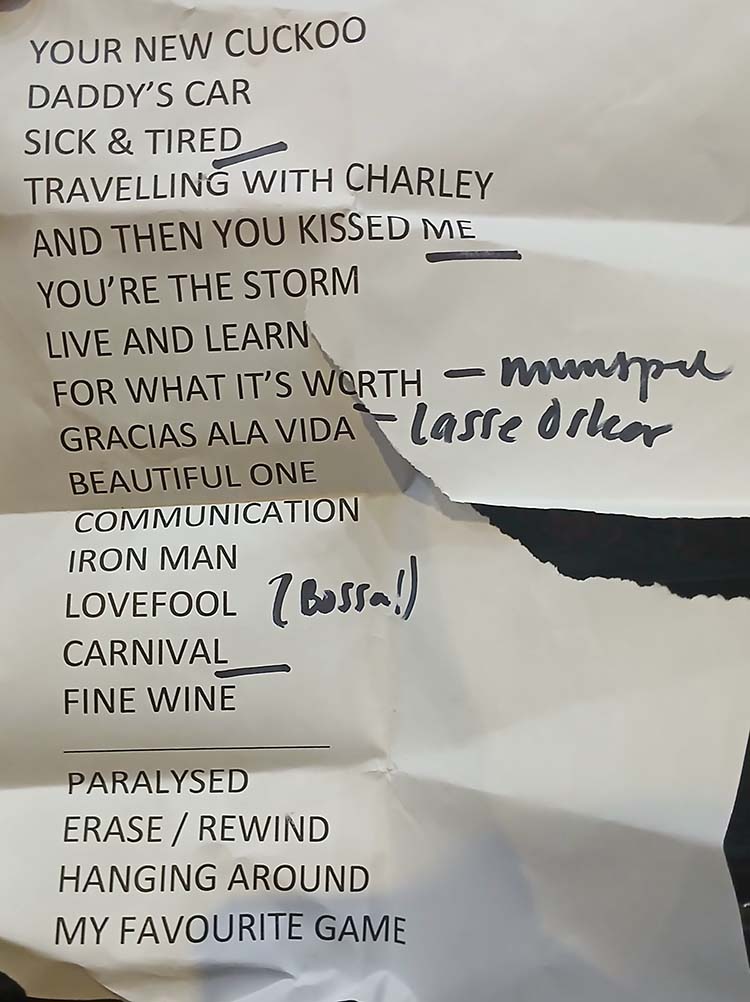 YOUR NEW CUCKOO
DADDY'S CAR
SICK & TIRED
TRAVELLING WITH CHARLEY
AND THEN YOU KISSED ME
YOU'RE THE STORM
LIVE AND LEARN
FOR WHAT IT'S WORTH – munspel
GRACIAS ALA VIDA – Lasse Oskar
BEAUTIFUL ONE
COMMUNICATION
IRON MAN
LOVEFOOL (Bossa!)
CARNIVAL
FINE WINE
PARALYSED
ERASE / REWIND
HANGING AROUND
MY FAVOURITE GAME